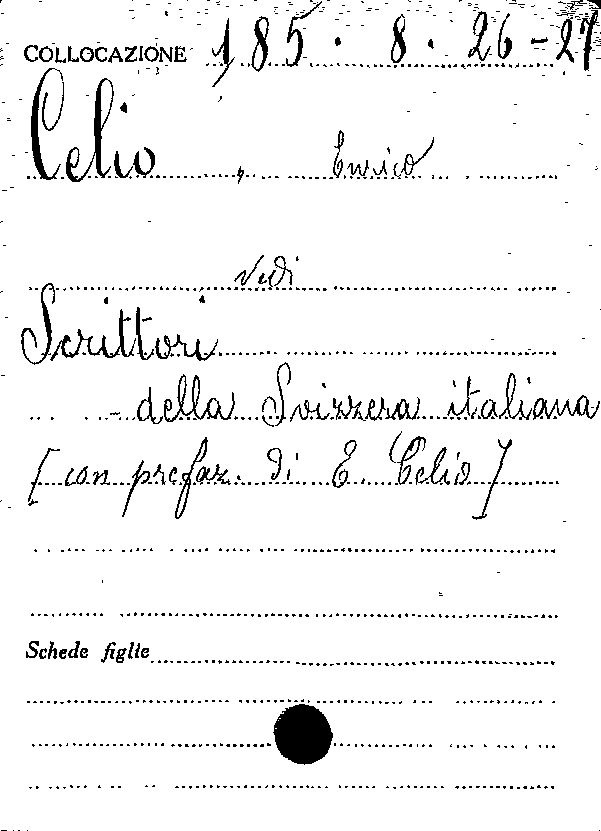 COLLOCAZIONE 185. 8. 26-27
Celio, Enrico
Vedi
Scrittori
- della Svizzera italiana
[con prefaz. di E. Celio]
Schede figlie